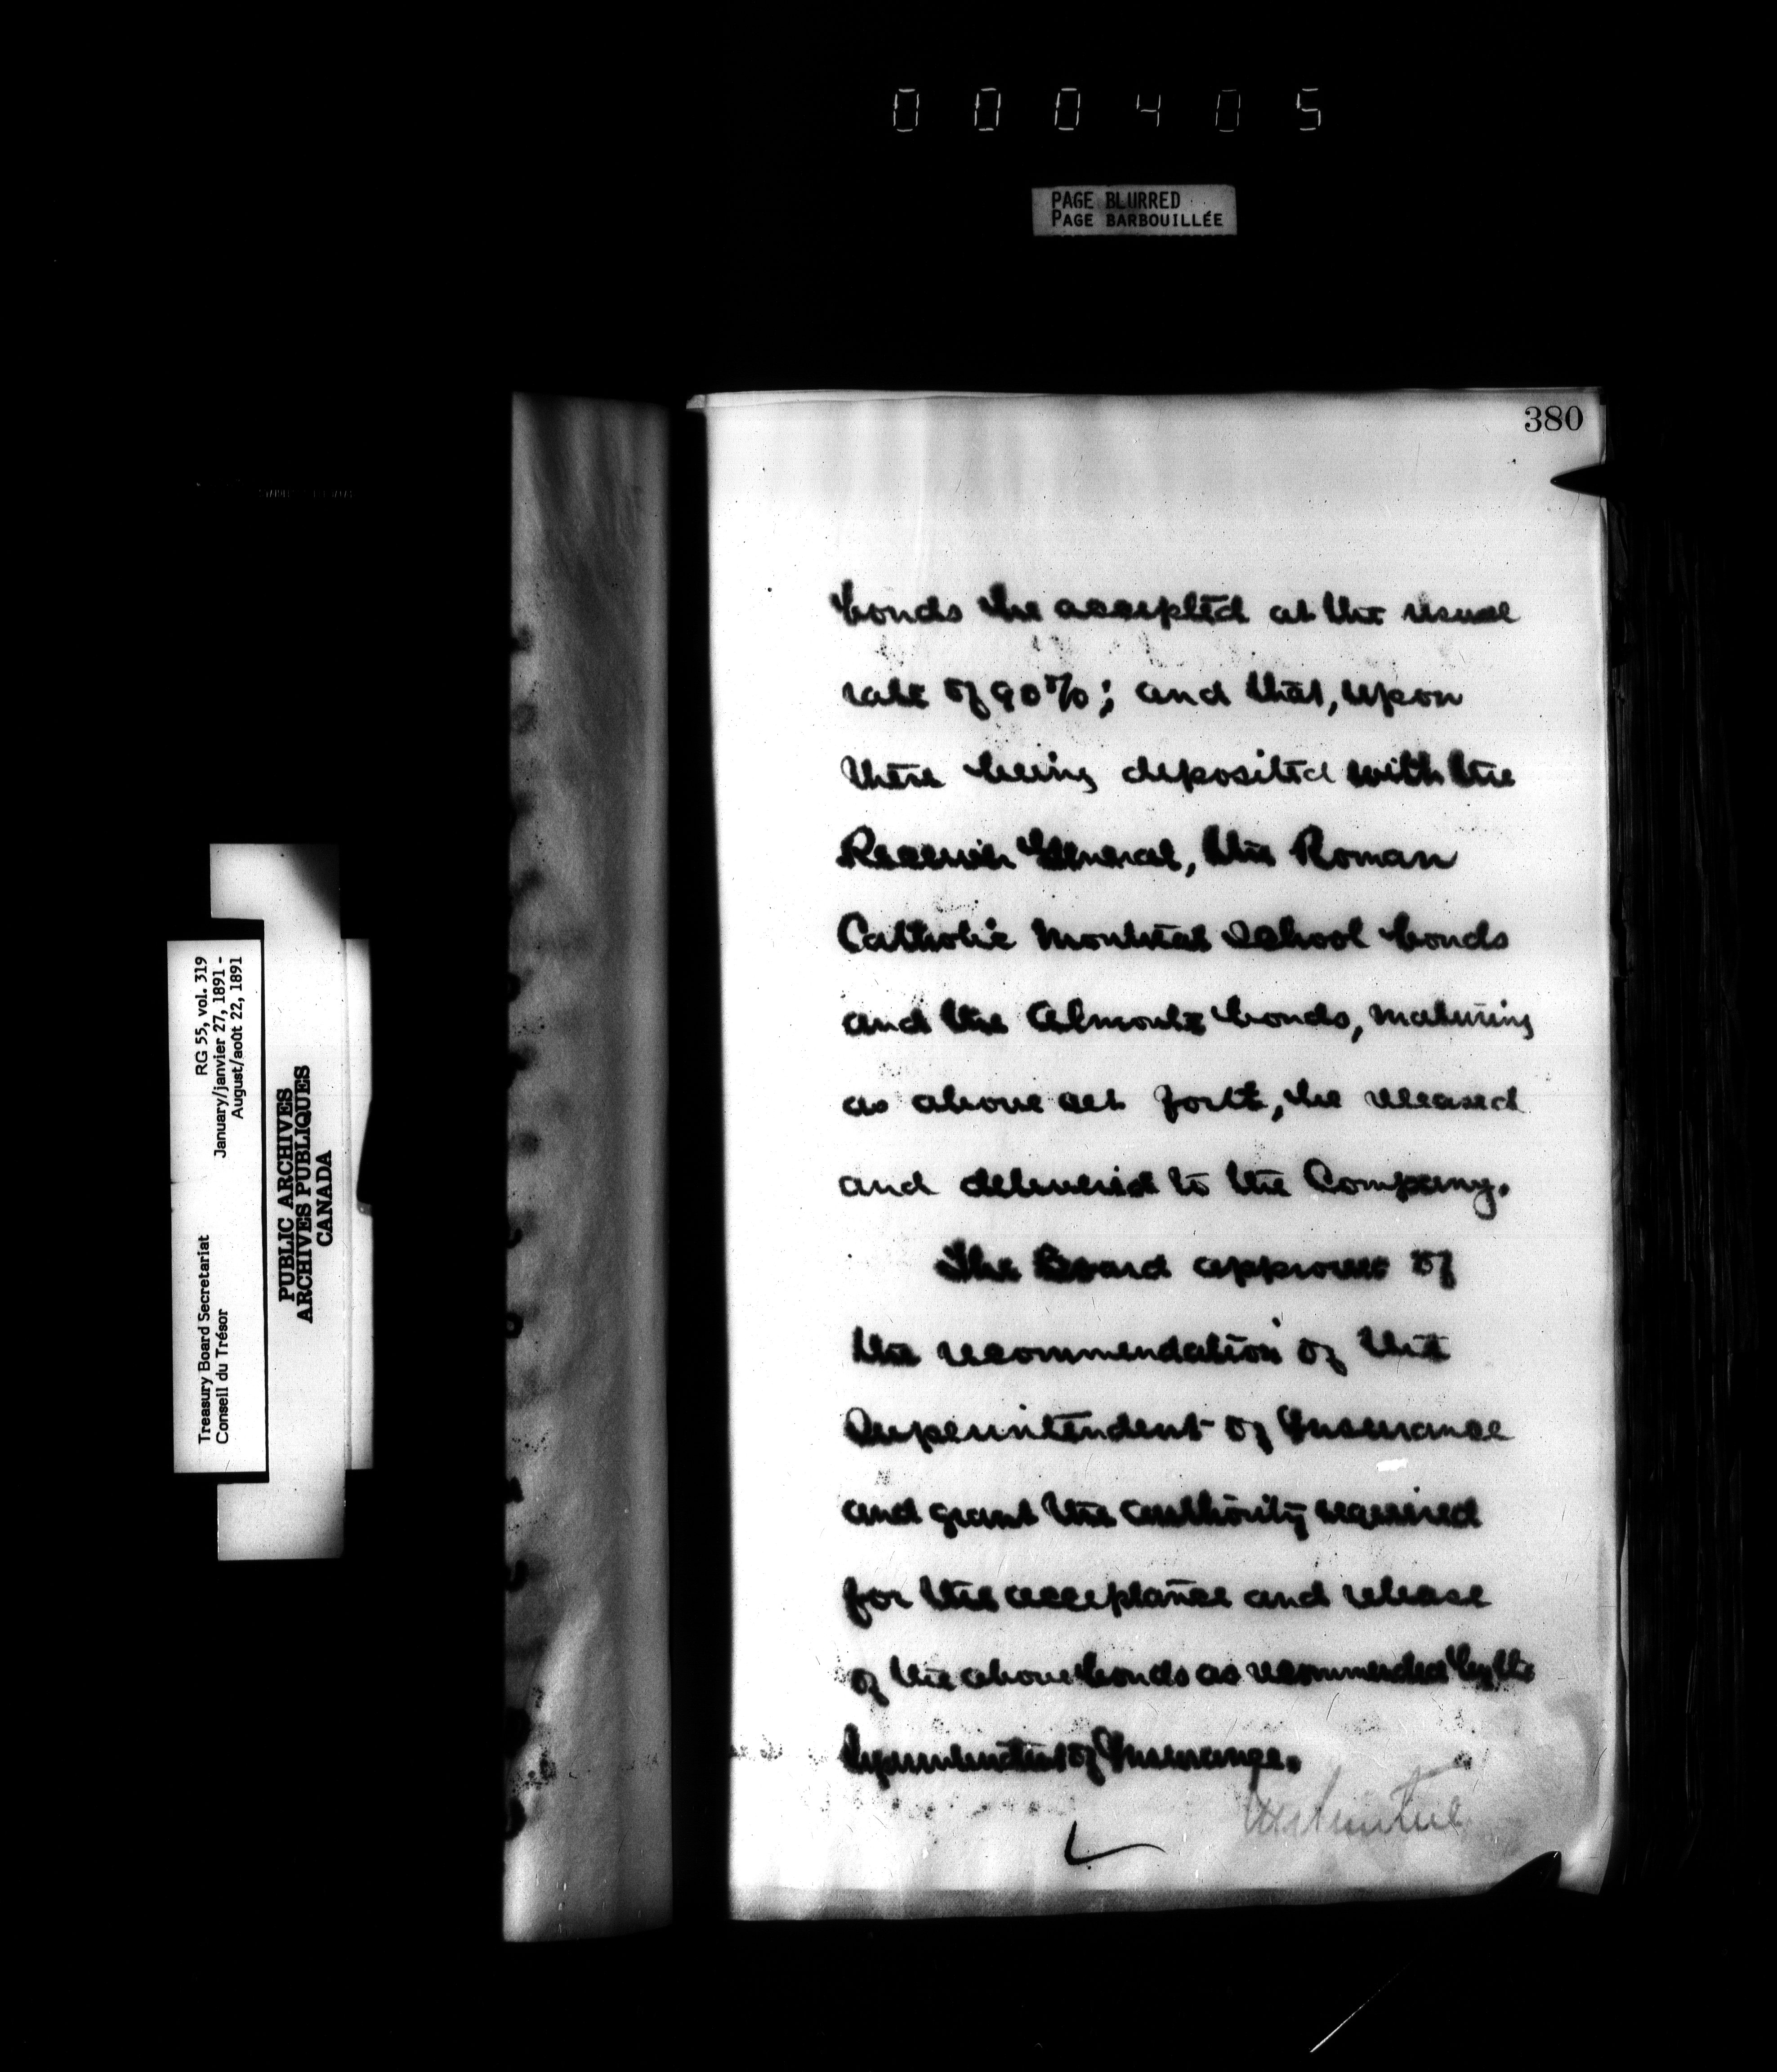 000405
PAGE BLURRED
PAGE BARBOUILLÉE
380
bonds be accepted at the usual
rate of 90%; and that, upon
there being deposited with the
Receiver General, the Roman
Catholic Montreal School bonds
and the Almonte bonds, maturing
as above set forth, be released
and delivered to the Company.
The Board approves of
the recommendation of the
Superintendent of Insurance
and grant the authority required
for the acceptance and release
of the above bonds as recommended by the
Superintendent of Insurance.
Treasury Board Secretariat RG 55, vol. 319
Conseil du Trésor January/janvier 27, 1891 -
August/août 22, 1891
PUBLIC ARCHIVES
ARCHIVES PUBLIQUES
CANADA